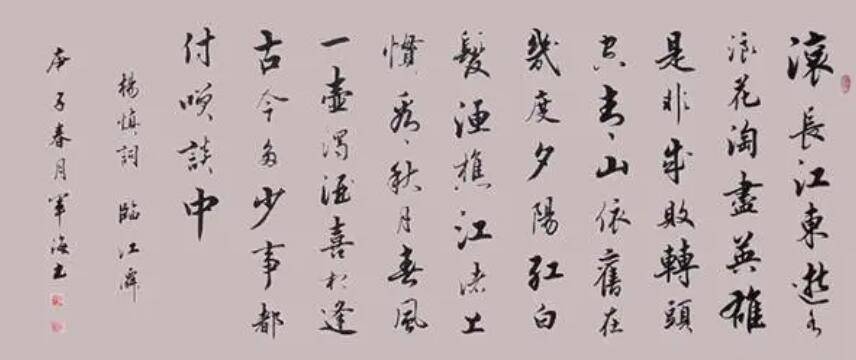 滚長江東逝水
浪花淘盡英雄
是非成敗轉頭
空青山依舊在
幾度夕陽紅白
髮漁樵江渚上
慣看秋月春風
一壺濁酒喜相逢
古今多少事都
付笑談中
楊慎詞 臨江僊
庚子春月軍海书